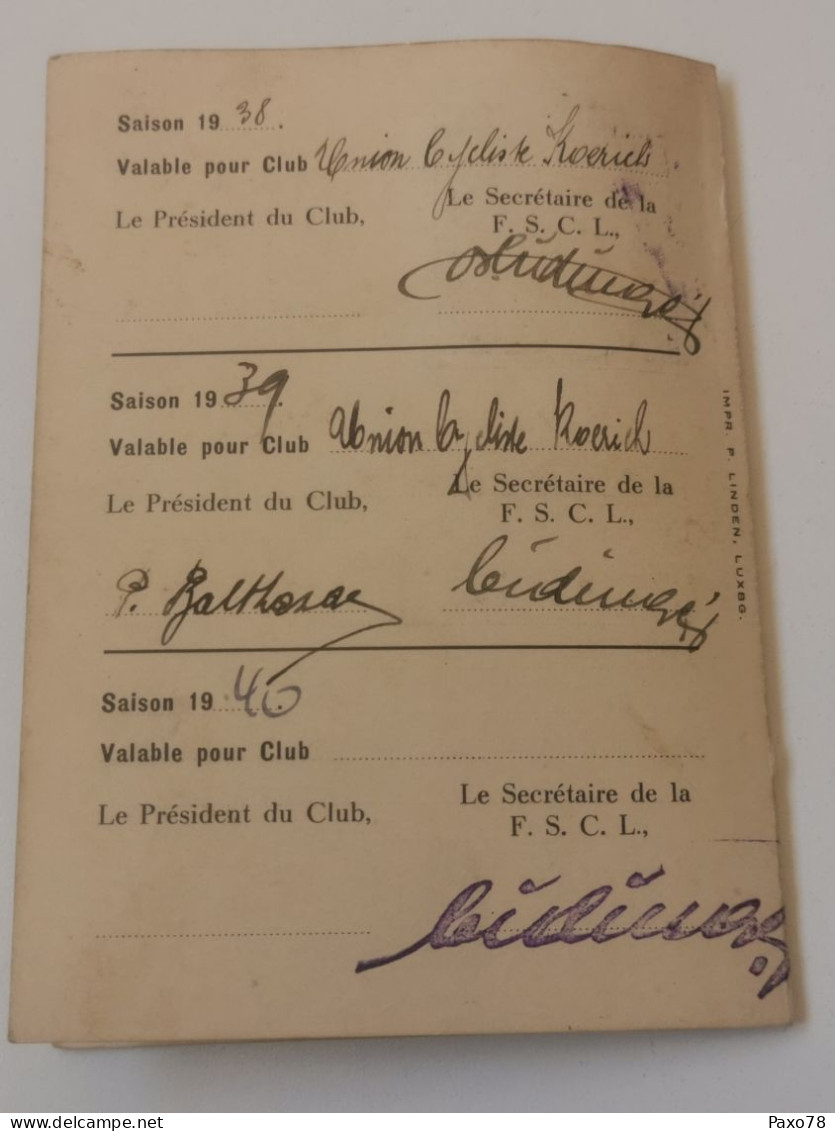 Saison 19 38.
Valable pour Club Union Cycliste Koerich.
Le Président du Club,
Le Secrétaire de la
F. S. C. L.,
Saison 19 39.
Valable pour Club Union Cycliste Koerich
Le Président du Club,
Le Secrétaire de la
F. S. C. L.,
P. Balthasar
Saison 19 40.
Valable pour Club
Le Président du Club,
Le Secrétaire de la
F. S. C. L.,
IMPR. P. LINDEN, LUXBG.
delcampe.net
Paxo78